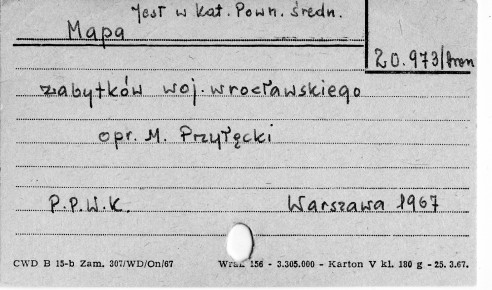 Jest w Kat. Pown. średn.
Mapa
20.973/
zabytków woj. wrocławskiego
opr. M. Przyłęcki
P.P.W.K. Warszawa 1967
CWD B 15-b Zam. 307/WD/On/67 156 - 3.305.000 - Karton V kl. 180 g - 25. 3.67.